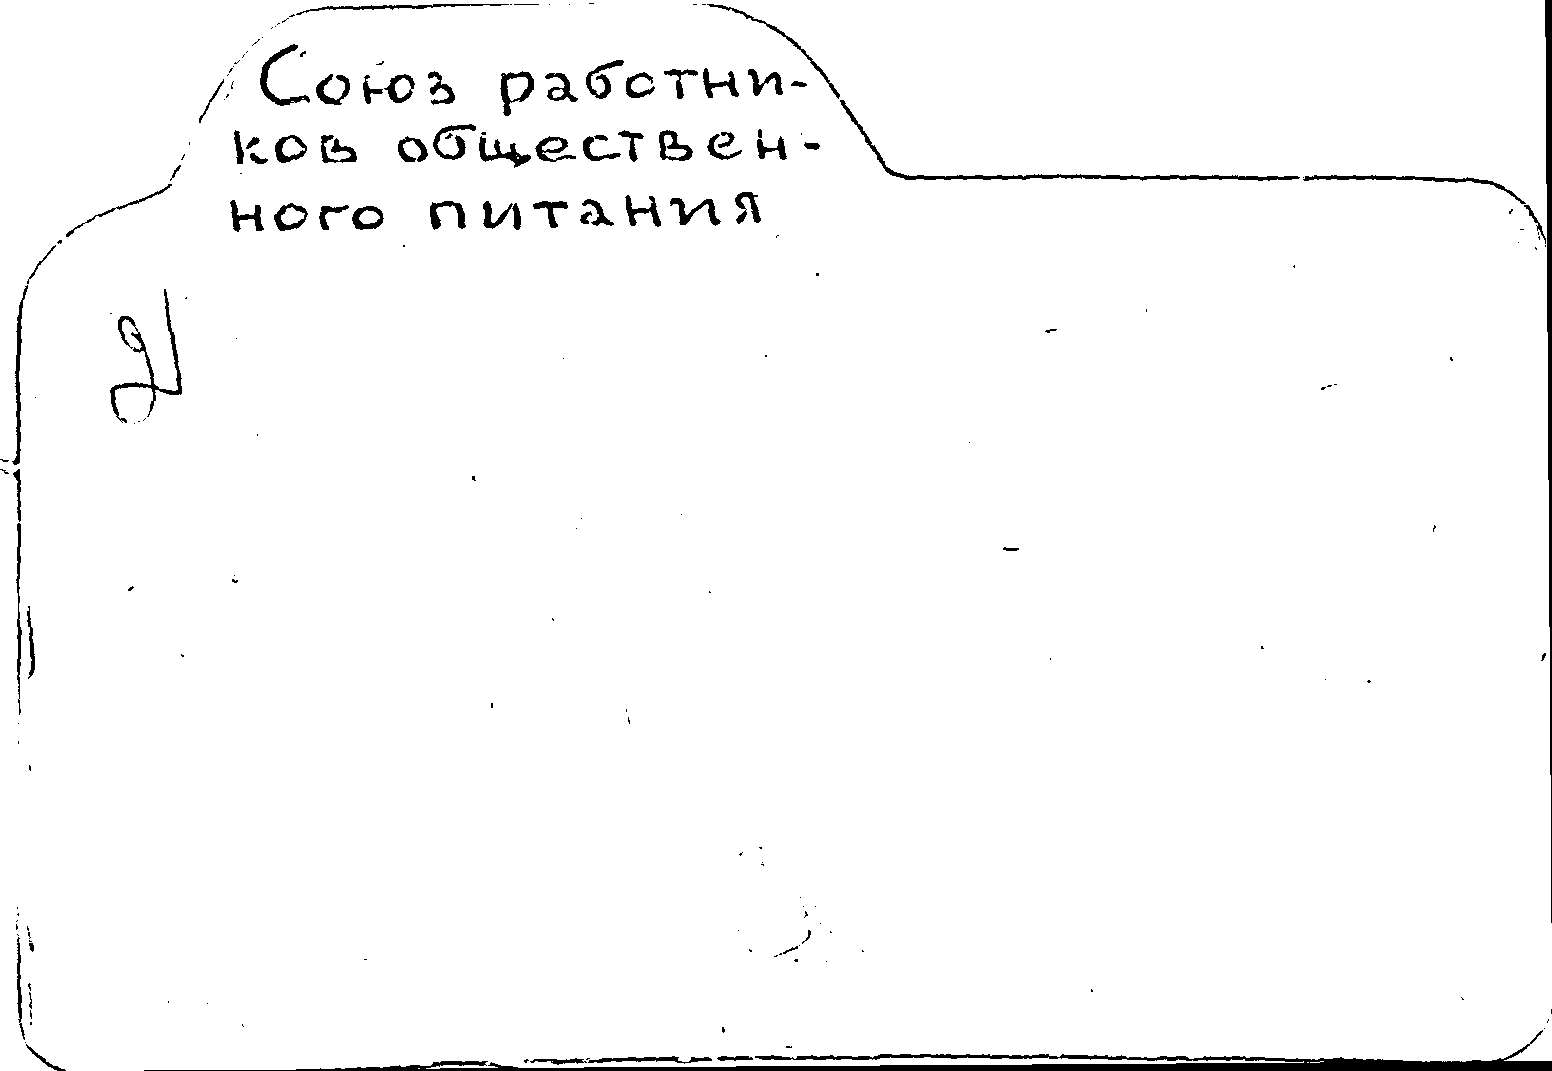 Союз работни-
ков обществен-
ного питания